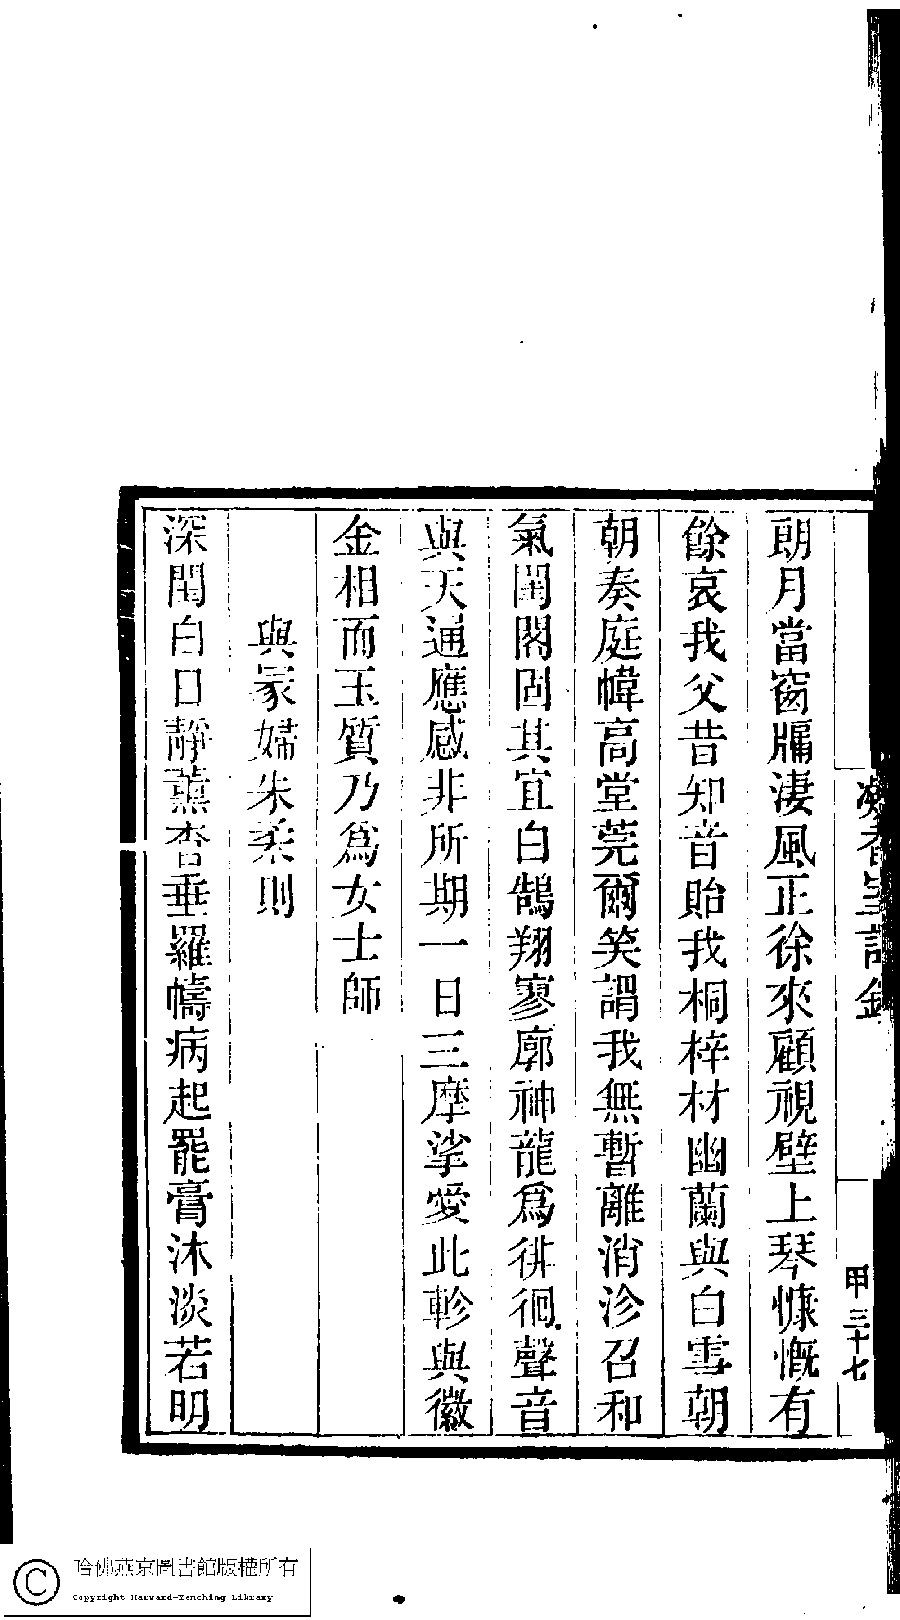 朗月當窗牖淒風正徐來顧視壁上琴慷慨有
餘哀我父昔知音貽我桐梓材幽蘭與白雪朝
朝奏庭幃高堂莞爾笑謂我無暫離消沴召和
氣閨閣固其宜白鵠翔寥廓神龍為徘徊聲音
與天通應感非所期一日三摩挲愛此軫與徽
金相而玉質乃為女士師
與冡婦朱柔則
深閨白日靜薰香垂羅幬病起罷膏沐淡若明
凝香室詩鈔
甲三十七
哈佛燕京圖書館版權所有
Copyright Harvard-Yenching Library